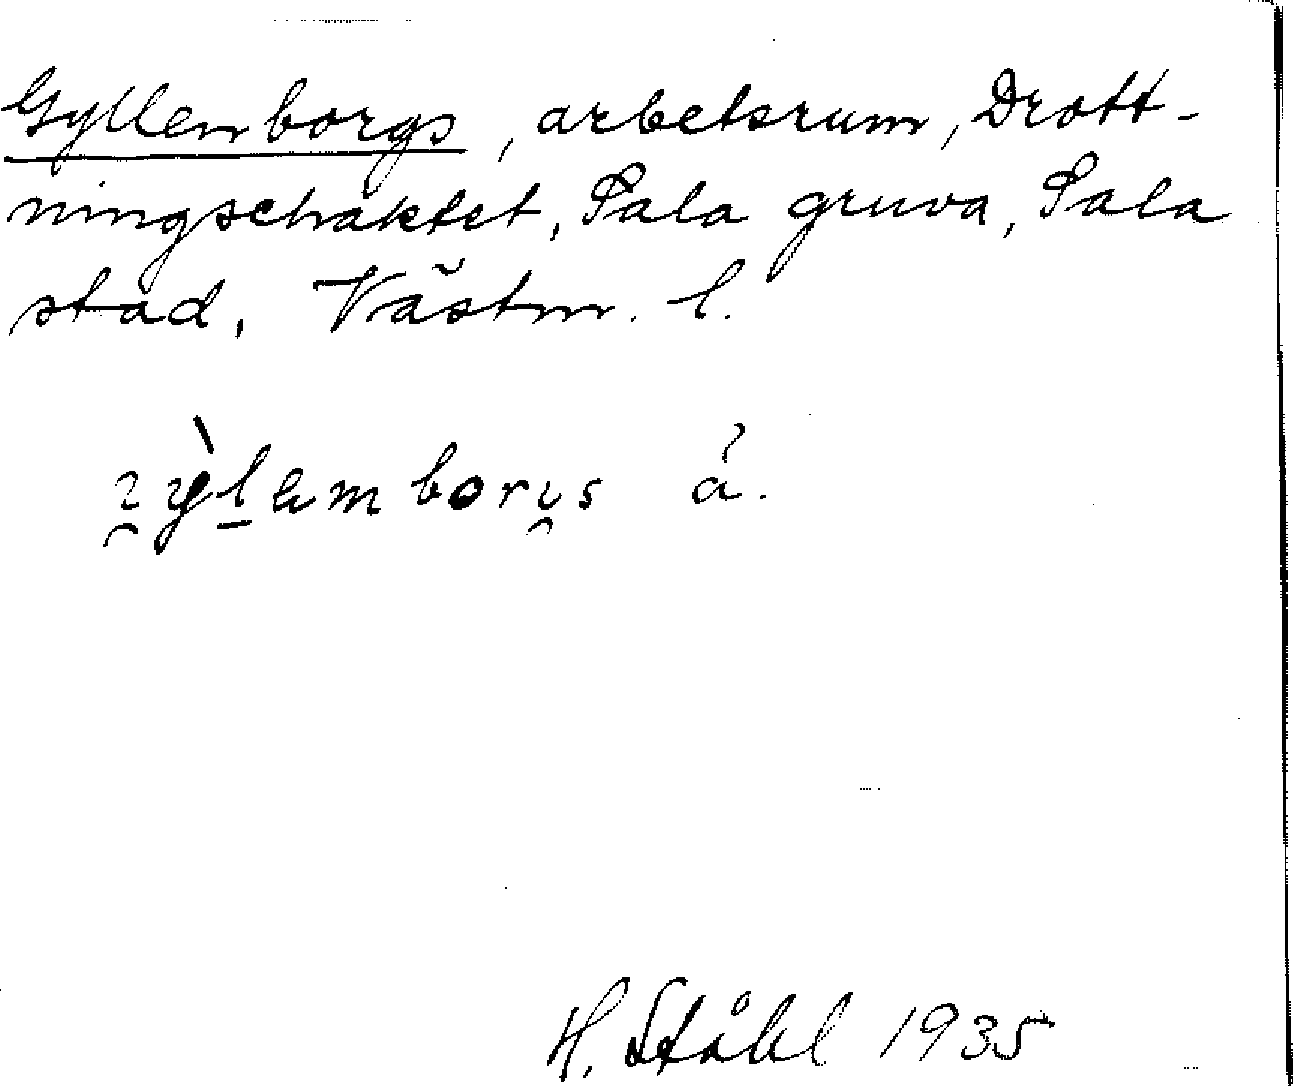 Gyllenborgs, arbetsrum, Drott-
ningschaktet, Sala gruva, Sala
stad, Västm. l.
å.
H. Ståhl 1935